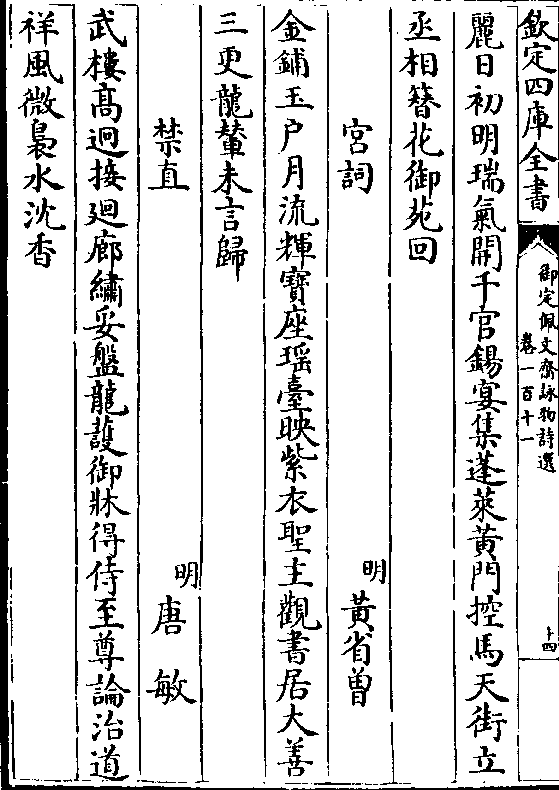 欽定四庫全書
御定佩文齋詠物詩選
卷一百十一
十四
麗日初明瑞氣開千官錫宴集蓬萊黃門控馬天街立
丞相簪花御苑回
宮詞
明黃省曾
金鋪玉户月流輝寶座瑶臺映紫衣聖主觀書居大善
三更龍輦未言歸
禁直
明唐敏
武樓髙迥接廻廊繡妥盤龍護御牀得侍至尊論治道
祥風微裊水沈香